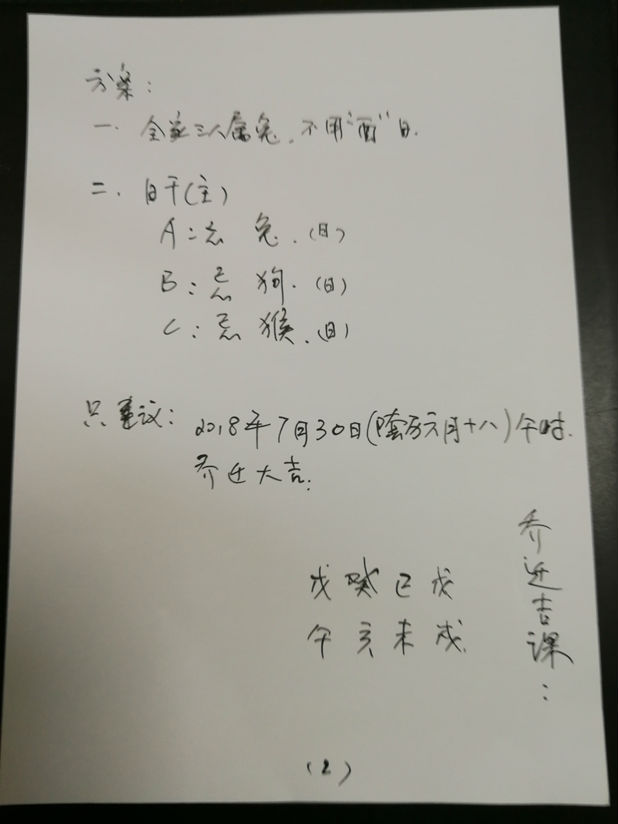 方案：
一. 全家三人属兔，不用“酉”日.
二. 日干(主)
A：忌 兔.（日）
B：忌 狗.（日）
C：忌 猴.（日）
只建议：2018年7月30日(阴历六月十八)午时.
乔迁大吉：
乔迁吉课：
戊 癸 己 戊
午 亥 未 戌
(2)